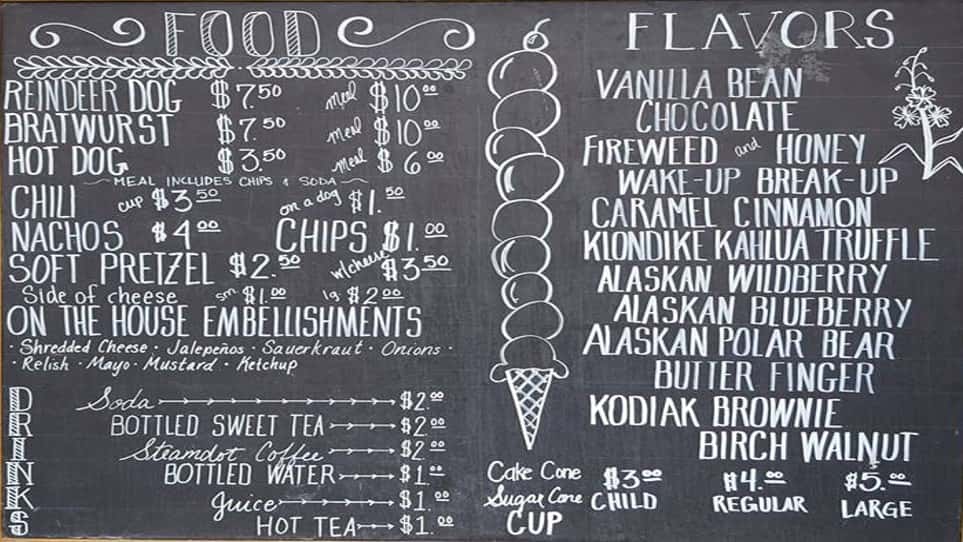 FOOD
REINDEER DOG $7.50 meal $10.00
BRATWURST $7.50 meal $10.00
HOT DOG $3.50 meal $6.00
MEAL INCLUDES CHIPS & SODA
CHILI cup $3.50 on a dog $1.50
NACHOS $4.00 CHIPS $1.00
SOFT PRETZEL $2.50 w/cheese $3.50
Side of cheese sm $1.00 lg $2.00
ON THE HOUSE EMBELLISHMENTS
· Shredded Cheese · Jalepeños · Sauerkraut · Onions ·
· Relish · Mayo · Mustard · Ketchup
DRINKS
Soda $2.00
BOTTLED SWEET TEA $2.00
Steamdot Coffee $2.00
BOTTLED WATER $1.00
Juice $1.00
HOT TEA $1.00
FLAVORS
VANILLA BEAN
CHOCOLATE
FIREWEED and HONEY
WAKE-UP BREAK-UP
CARAMEL CINNAMON
KLONDIKE KAHLUA TRUFFLE
ALASKAN WILDBERRY
ALASKAN BLUEBERRY
ALASKAN POLAR BEAR
BUTTER FINGER
KODIAK BROWNIE
BIRCH WALNUT
Cake Cone $3.00 $4.00 $5.00
Sugar Cone CHILD REGULAR LARGE
CUP